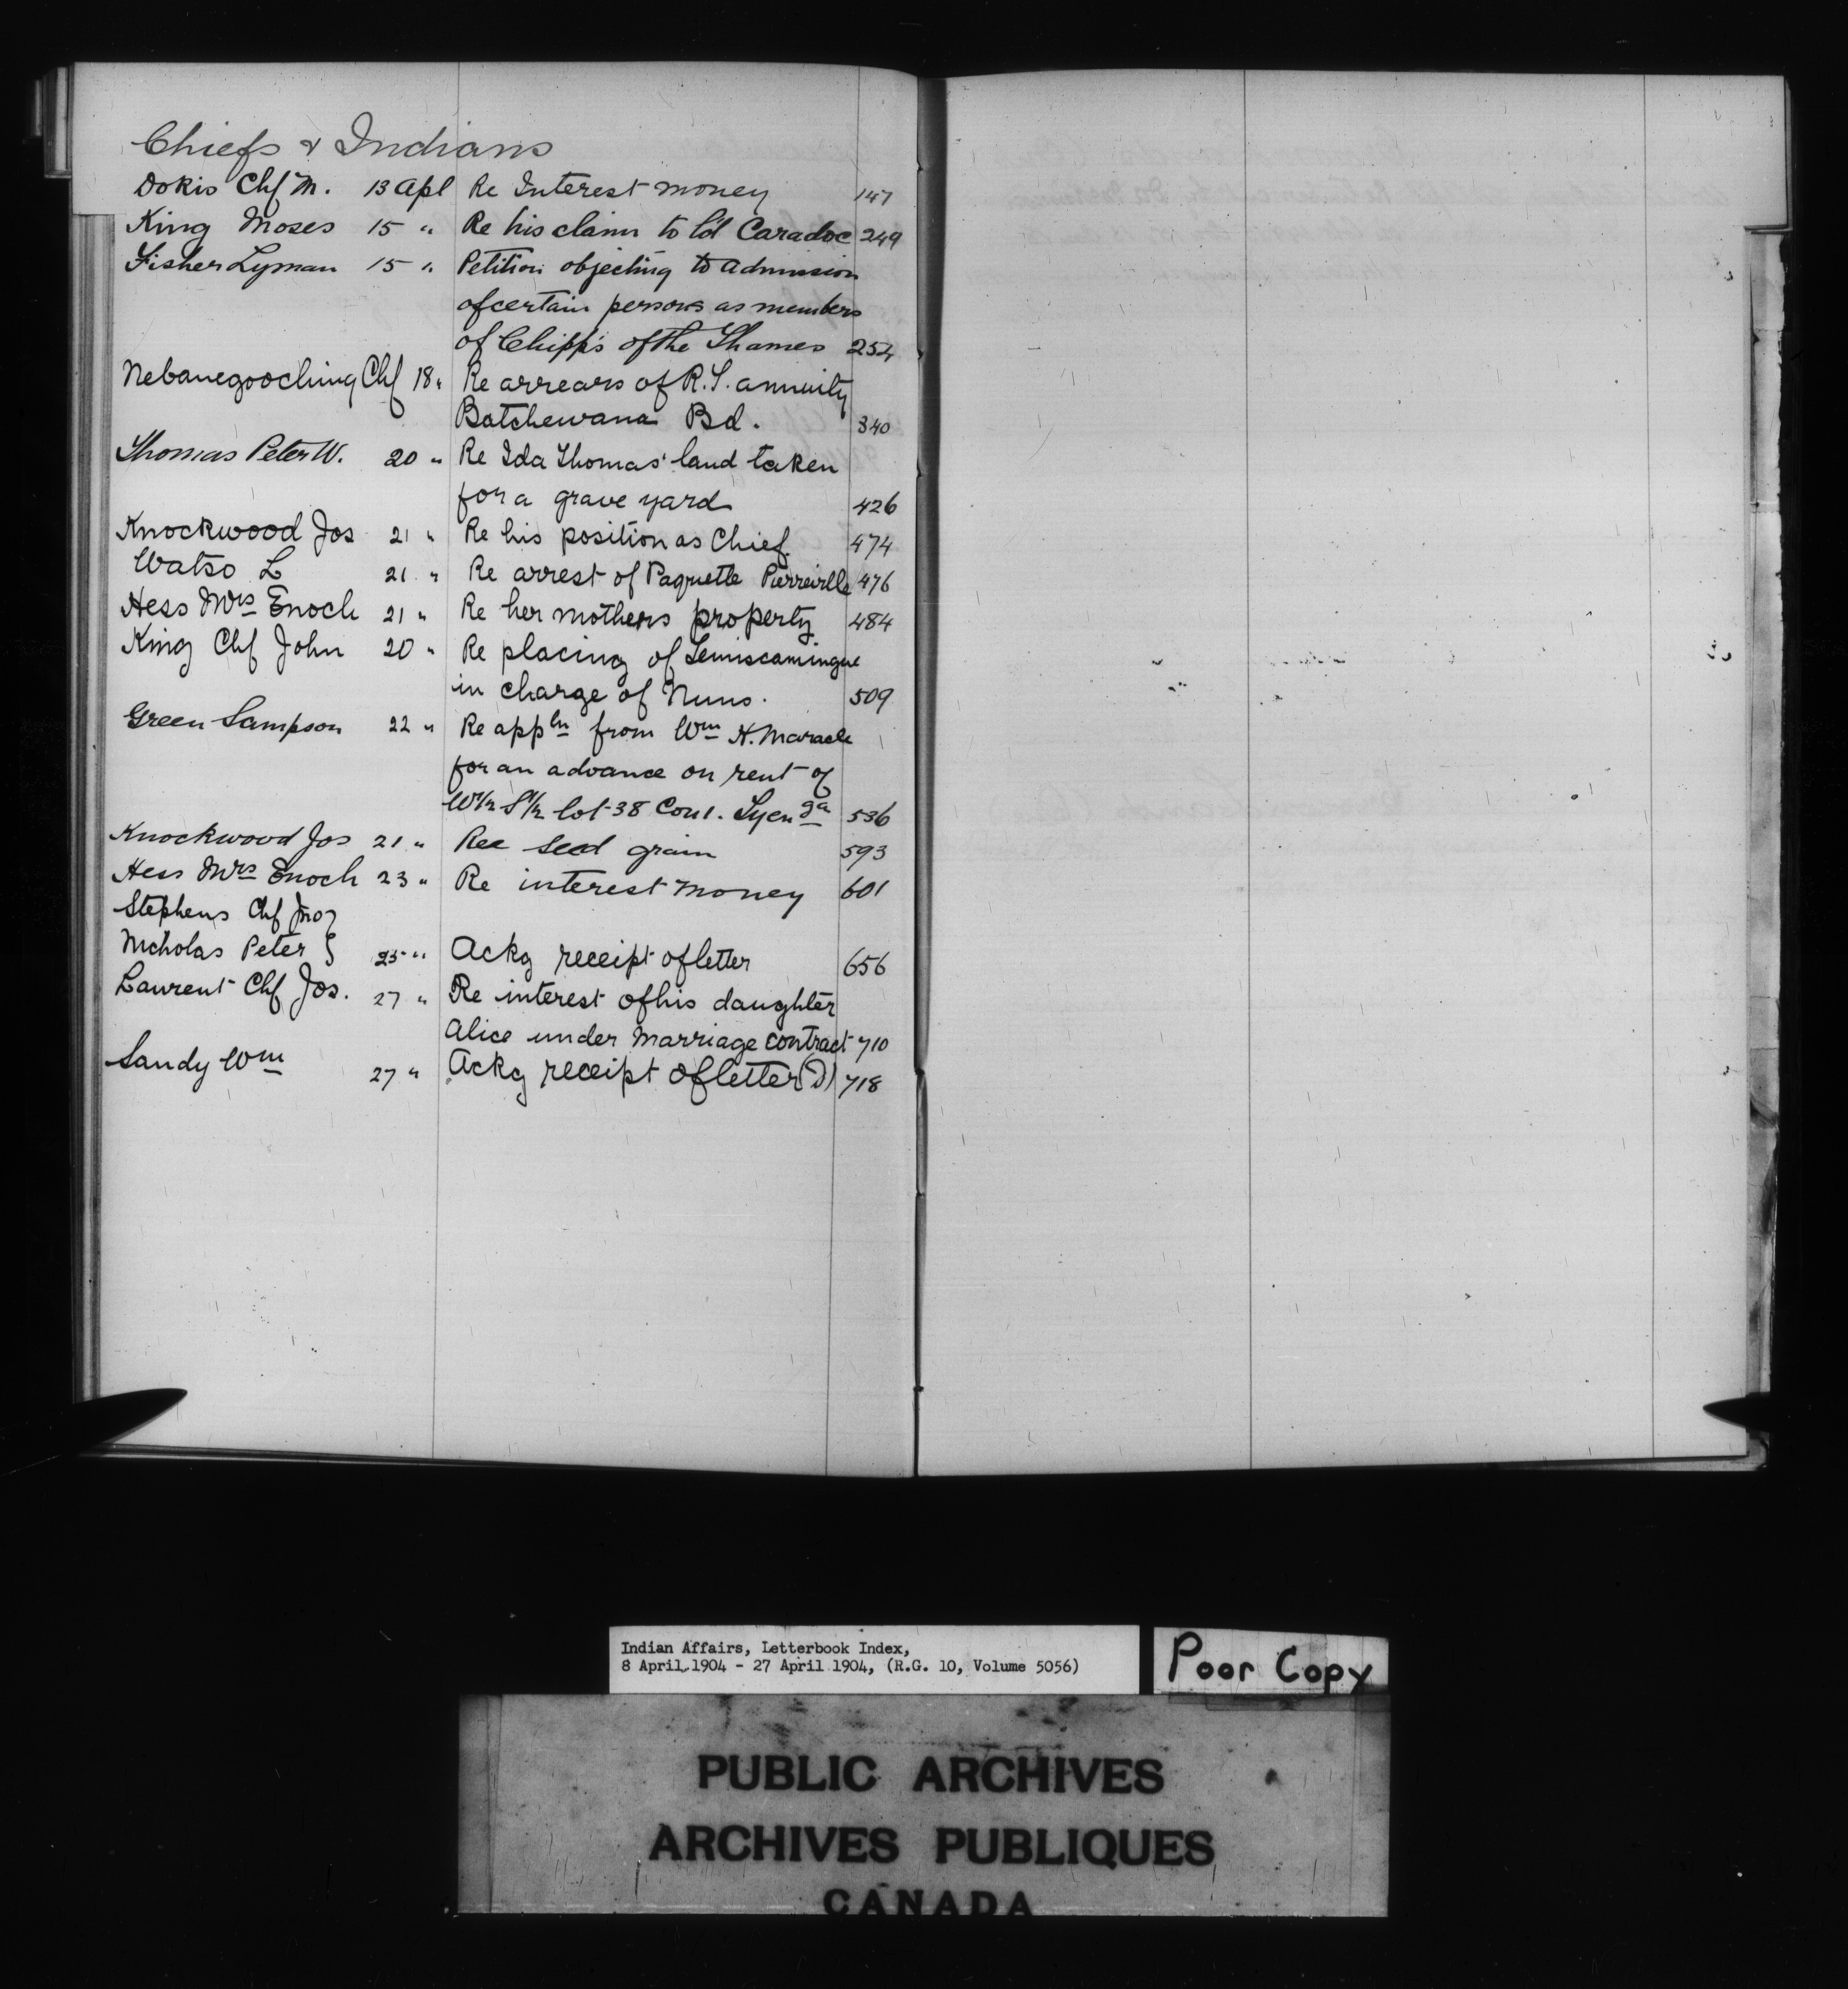 Chiefs & Indians
Dokis Chf M. 13 Apl Re Interest money 147
King Moses 15 " Re his claim to ld Caradoc 249
Fisher Lyman 15 " Petition objecting to admission
of certain persons as members
of Chipp's of the Thames 254
Nebanegooching Chf 18 " Re arrears of R.T. annuity
Batchewana Bd. 340
Thomas Peter W. 20 " Re Ida Thomas' land taken
for a grave yard 426
Knockwood Jos 21 " Re his position as Chief. 474
Watso L 21 " Re arrest of Paquette Pierreville 476
Hess Mrs Enoch 21 " Re her mothers property 484
King Chf John 20 " Re placing of Temiscamingue
in charge of Nuns. 509
Green Sampson 22 " Re appln from Wm H. Maracle
for an advance on rent of
W1/2 S1/2 lot 38 Con 1. Tyenga 536
Knockwood Jos 21 " Ree seed grain 593
Hess Mrs Enoch 23 " Re interest money 601
Stephens Chf Jno }
Nicholas Peter } 25 " Ackg receipt of letter 656
Laurent Chf Jos. 27 " Re interest of his daughter
Alice under marriage contract 710
Sandy Wm 27 " Ackg receipt of letter (D) 718
Indian Affairs, Letterbook Index,
8 April 1904 - 27 April 1904, (R.G. 10, Volume 5056)
Poor Copy
PUBLIC ARCHIVES
ARCHIVES PUBLIQUES
CANADA